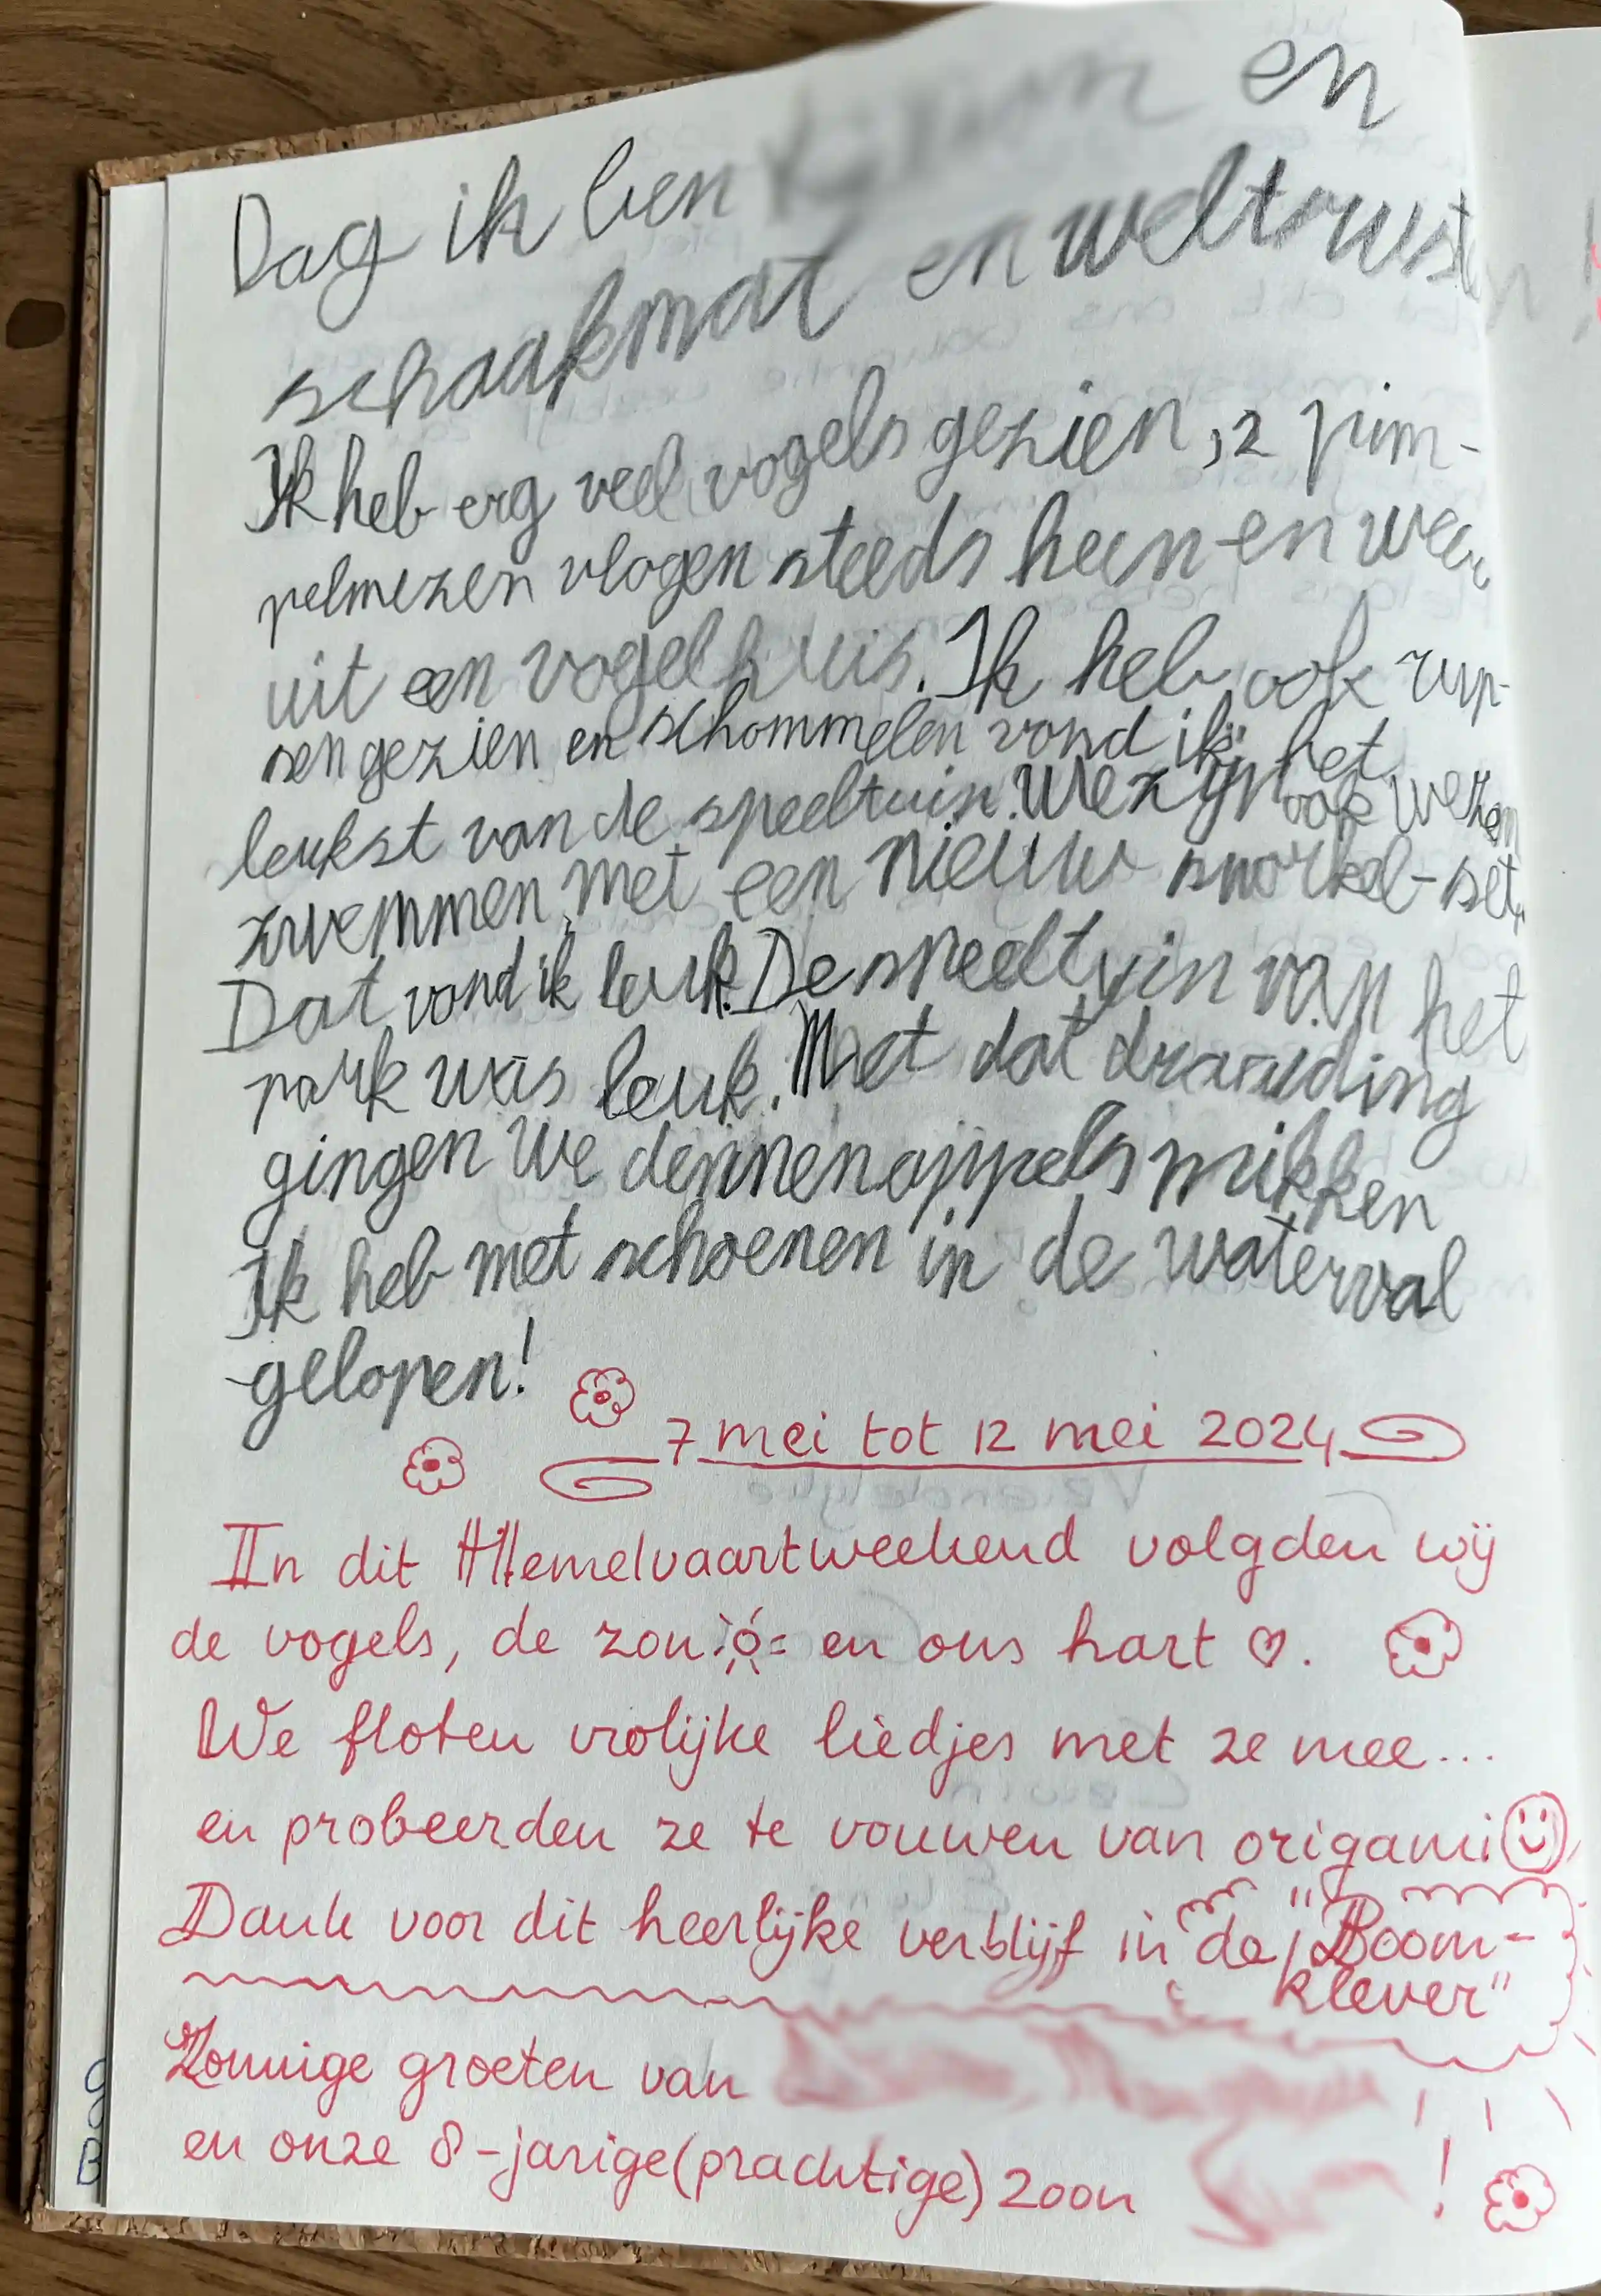 Dag ik ben en
schaakmat en weltrusten
Ik heb erg veel vogels gezien, 2 pim-
pelmezen vlogen steeds heen en weer
uit een vogelhuis. Ik heb ook rup-
sen gezien en schommelen vond ik het
leukst van de speeltuin. We zijn ook wezen
zwemmen, met een nieuw snorkel-set.
Dat vond ik leuk. De speeltuin van het
park was leuk. Met dat draaiding
gingen we dennenappels mikken
Ik heb met schoenen in de waterval
gelopen!
7 mei tot 12 mei 2024
In dit Hemelvaartweekend volgden wij
de vogels, de zon en ons hart ♡.
We floten vrolijke liedjes met ze mee...
en probeerden ze te vouwen van origami
Dank voor dit heerlijke verblijf in de "Boom-
klever"
Zonnige groeten van
en onze 8-jarige (prachtige) zoon !